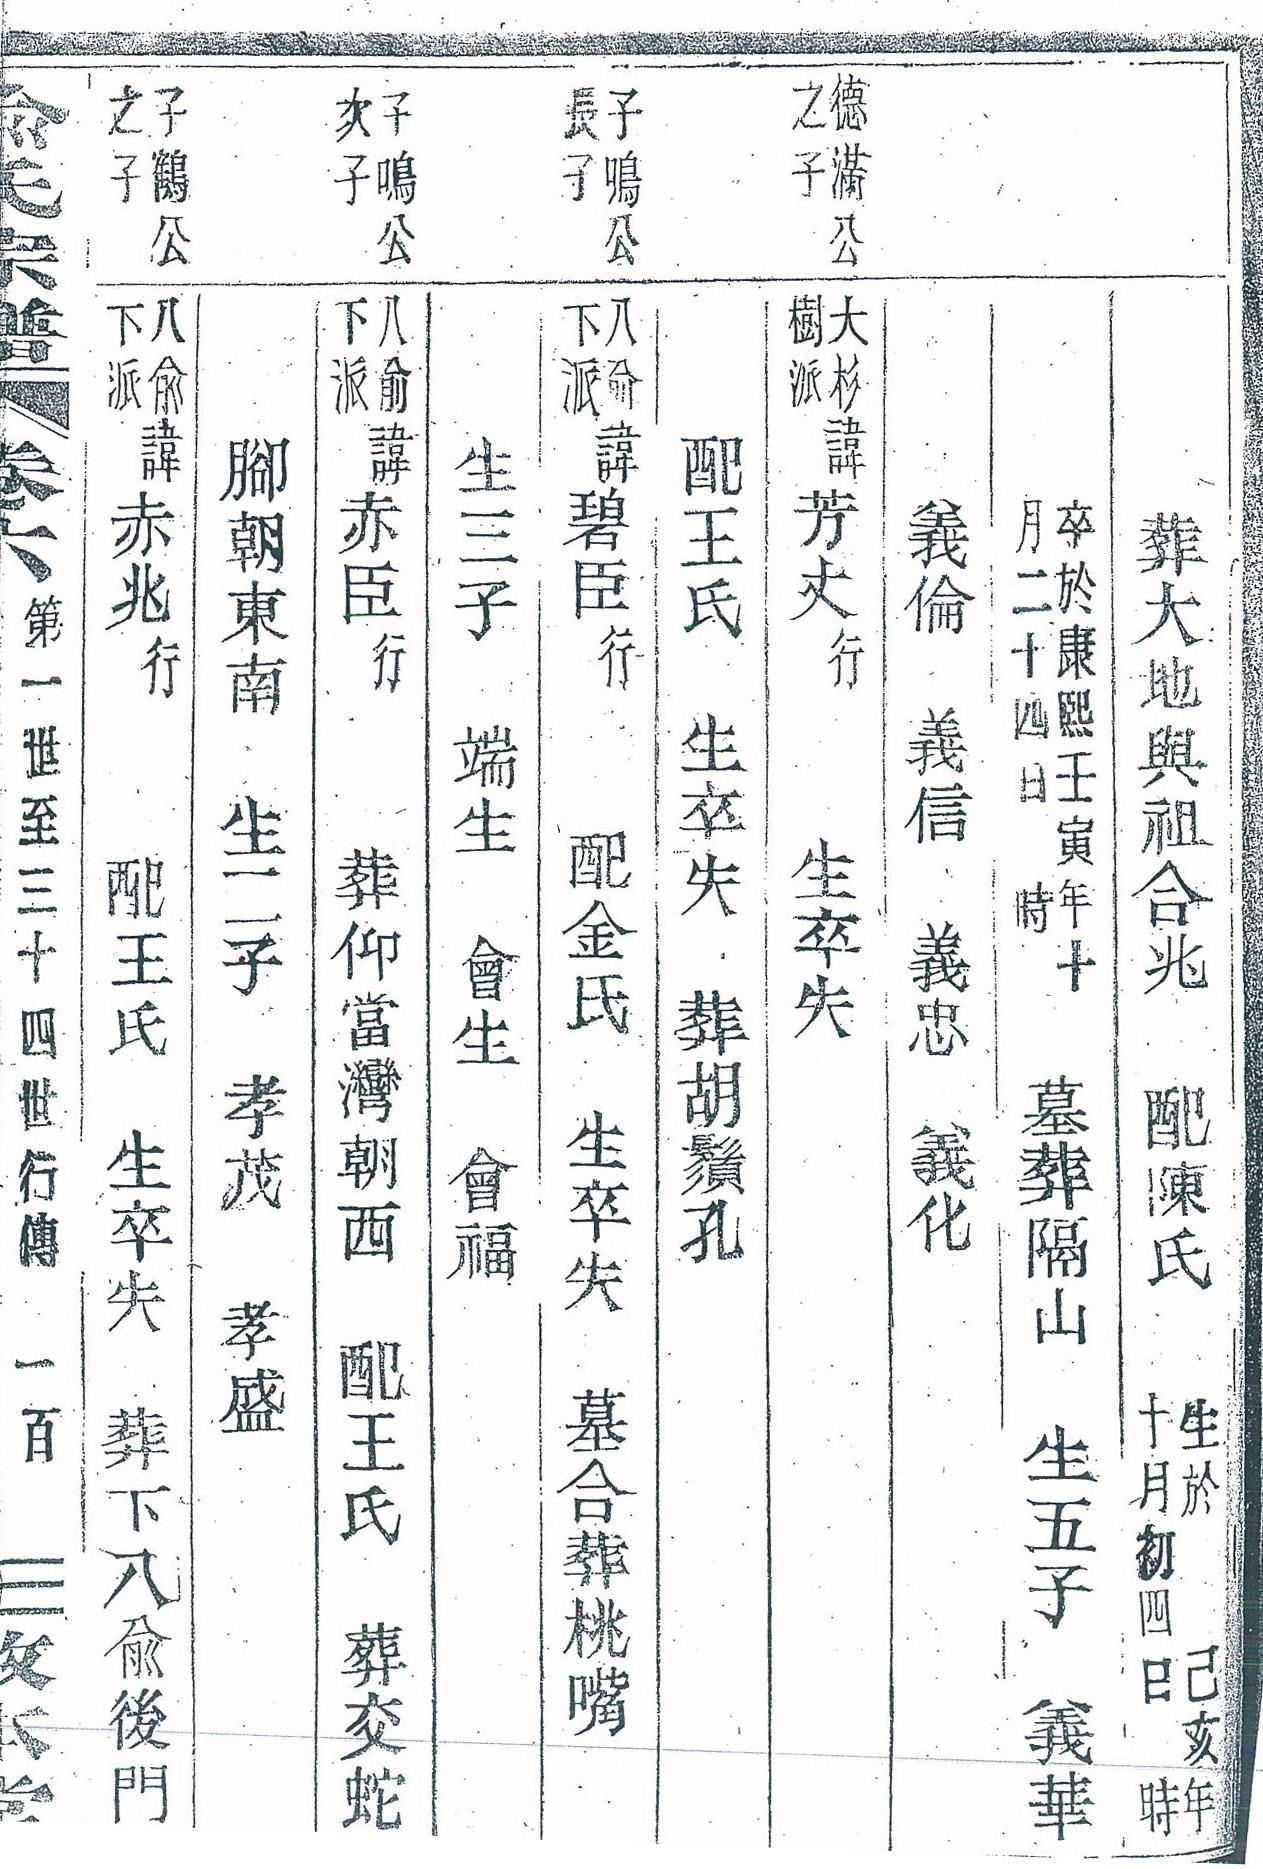 葬大地與祖合兆　配陳氏　生於　己亥年
十月初四日　時
卒於康熙壬寅年十
月二十四日　時　墓葬隔山　生五子　義華
義倫　義信　義忠　義化
德滿公
之子
大杉
樹派
諱芳丈行　生卒失
配王氏　生卒失　葬胡鬚孔
子鳴公
長子
八俞
下派
諱碧臣行　配金氏　生卒失　墓合葬桃嘴
生三子　端生　會生　會福
子鳴公
次子
八俞
下派
諱赤臣行　葬仰當灣朝西　配王氏　葬交蛇
腳朝東南　生二子　孝茂　孝盛
子鶴公
之子
八俞
下派
諱赤兆行　配王氏　生卒失　葬下八俞後門
俞氏宗譜　卷六　第一世至三十四世行傳　一百　三